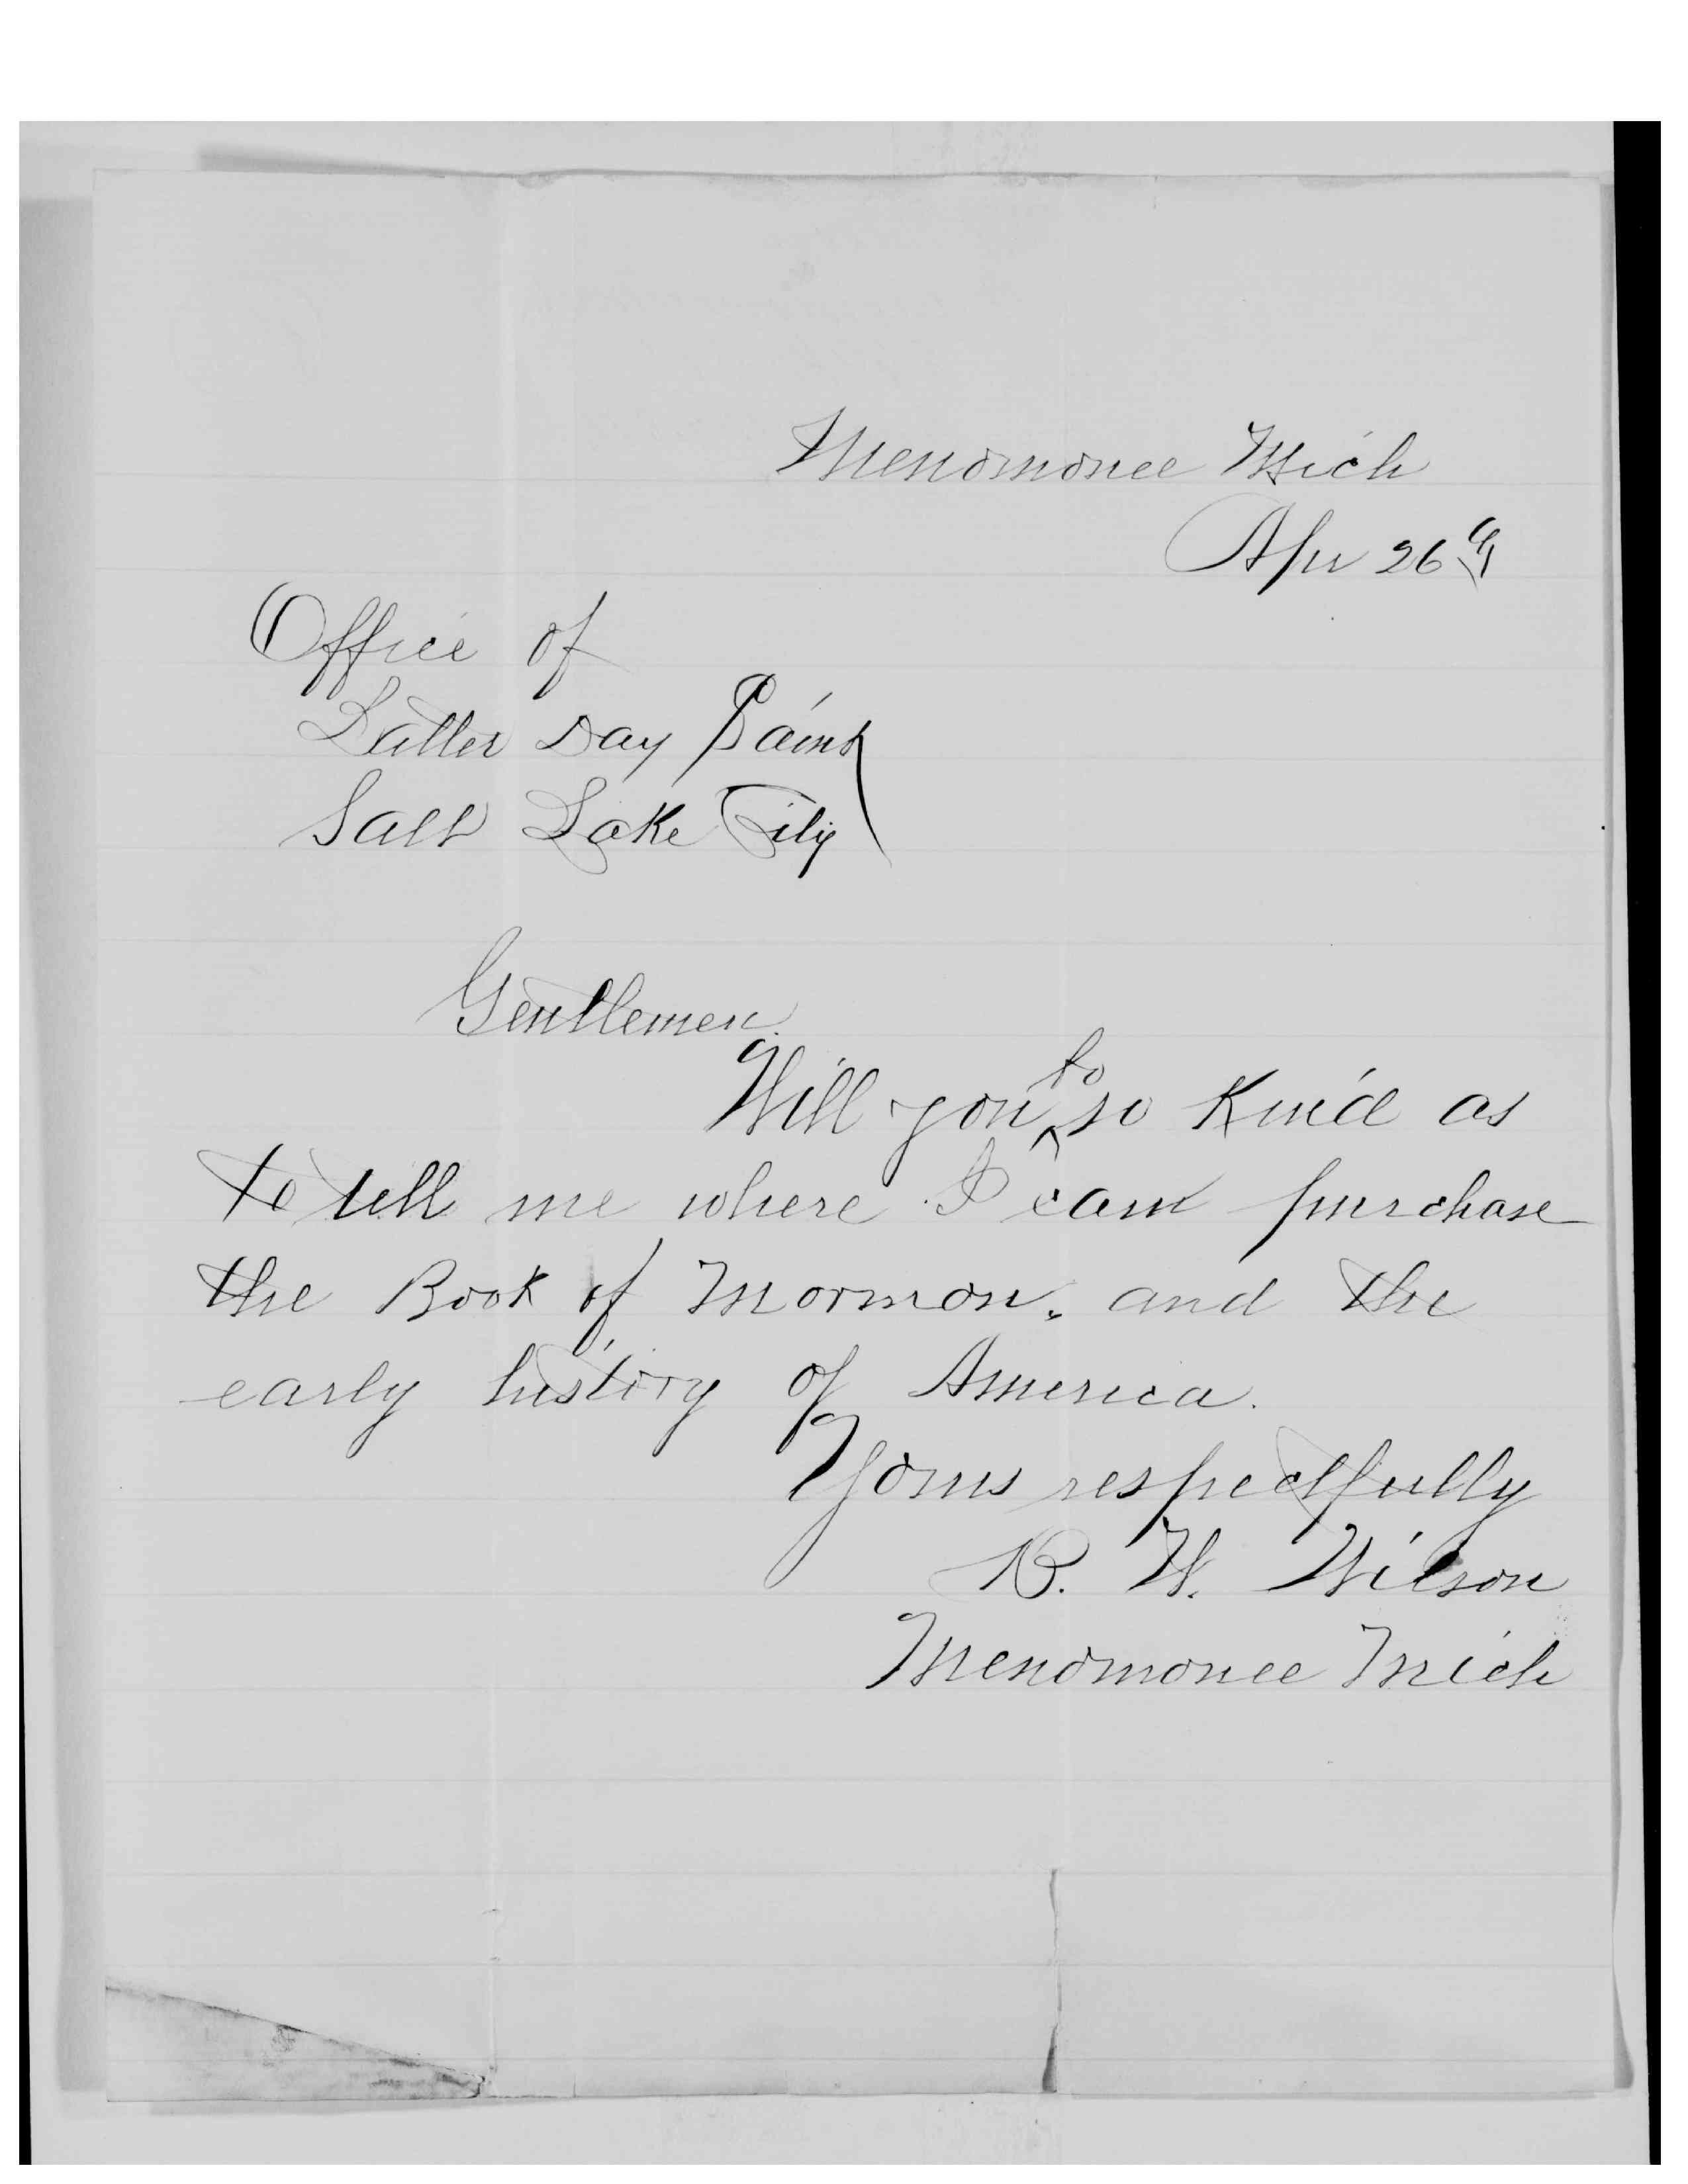 Menomonee Mich
Apr 26
Office of
Latter Day Saints
Salt Lake City
Gentlemen.
to
Will you ^ so Kind as
to tell me where I can purchase
the Book of Mormon. and the
early history of America.
Yours respectfully
B. W. Wilson
Menomonee Mich